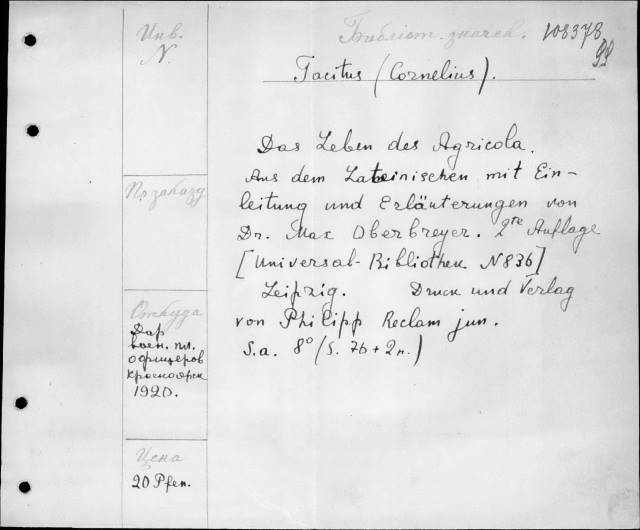 Инв.
N.
Библиот. значен. 108378
Tacitus (Cornelius).
Das Leben des Agricola.
Aus dem Lateinischen mit Ein-
leitung und Erläuterungen von
Dr. Max Oberbreyer. 2te Auflage
[Universal-Bibliothek N 836]
Leipzig. Druck und Verlag
von Philipp Reclam jun.
S.a. 8° (S. 76 + 2н.)
По заказу
Откуда
Дар
воен. пл.
офицеров
Красноярск
1920.
Цена
20 Pfen.